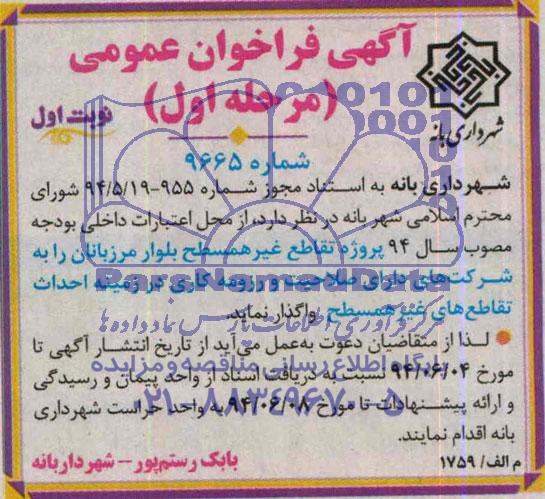 آگهی فراخوان عمومی
(مرحله اول)
نوبت اول
شهرداری بانه
شماره ۹۶۶۵
شهرداری بانه به استناد مجوز شماره ۹۵۵-۹۴/۵/۱۹ شورای
محترم اسلامی شهر بانه در نظر دارد، از محل اعتبارات داخلی بودجه
مصوب سال ۹۴ پروژه تقاطع غیرهمسطح بلوار مرزبانان را به
شرکت‌های دارای صلاحیت و رزومه کاری در زمینه احداث
تقاطع‌های غیرهمسطح واگذار نماید.
لذا از متقاضیان دعوت به‌عمل می‌آید از تاریخ انتشار آگهی تا
مورخ ۹۴/۰۶/۰۴ نسبت به دریافت اسناد از واحد پیمان و رسیدگی
و ارائه پیشنهادات تا مورخ ۹۴/۰۶/۰۸ به واحد حراست شهرداری
بانه اقدام نمایند.
م الف/ ۱۷۵۹
بابک رستم‌پور – شهردار بانه
ParsNamadData
مرکز فرآوری اطلاعات پارس نماد داده‌ها
پایگاه اطلاع رسانی مناقصه و مزایده
۰۲۱-۸۸۳۴۹۶۷۰-۵